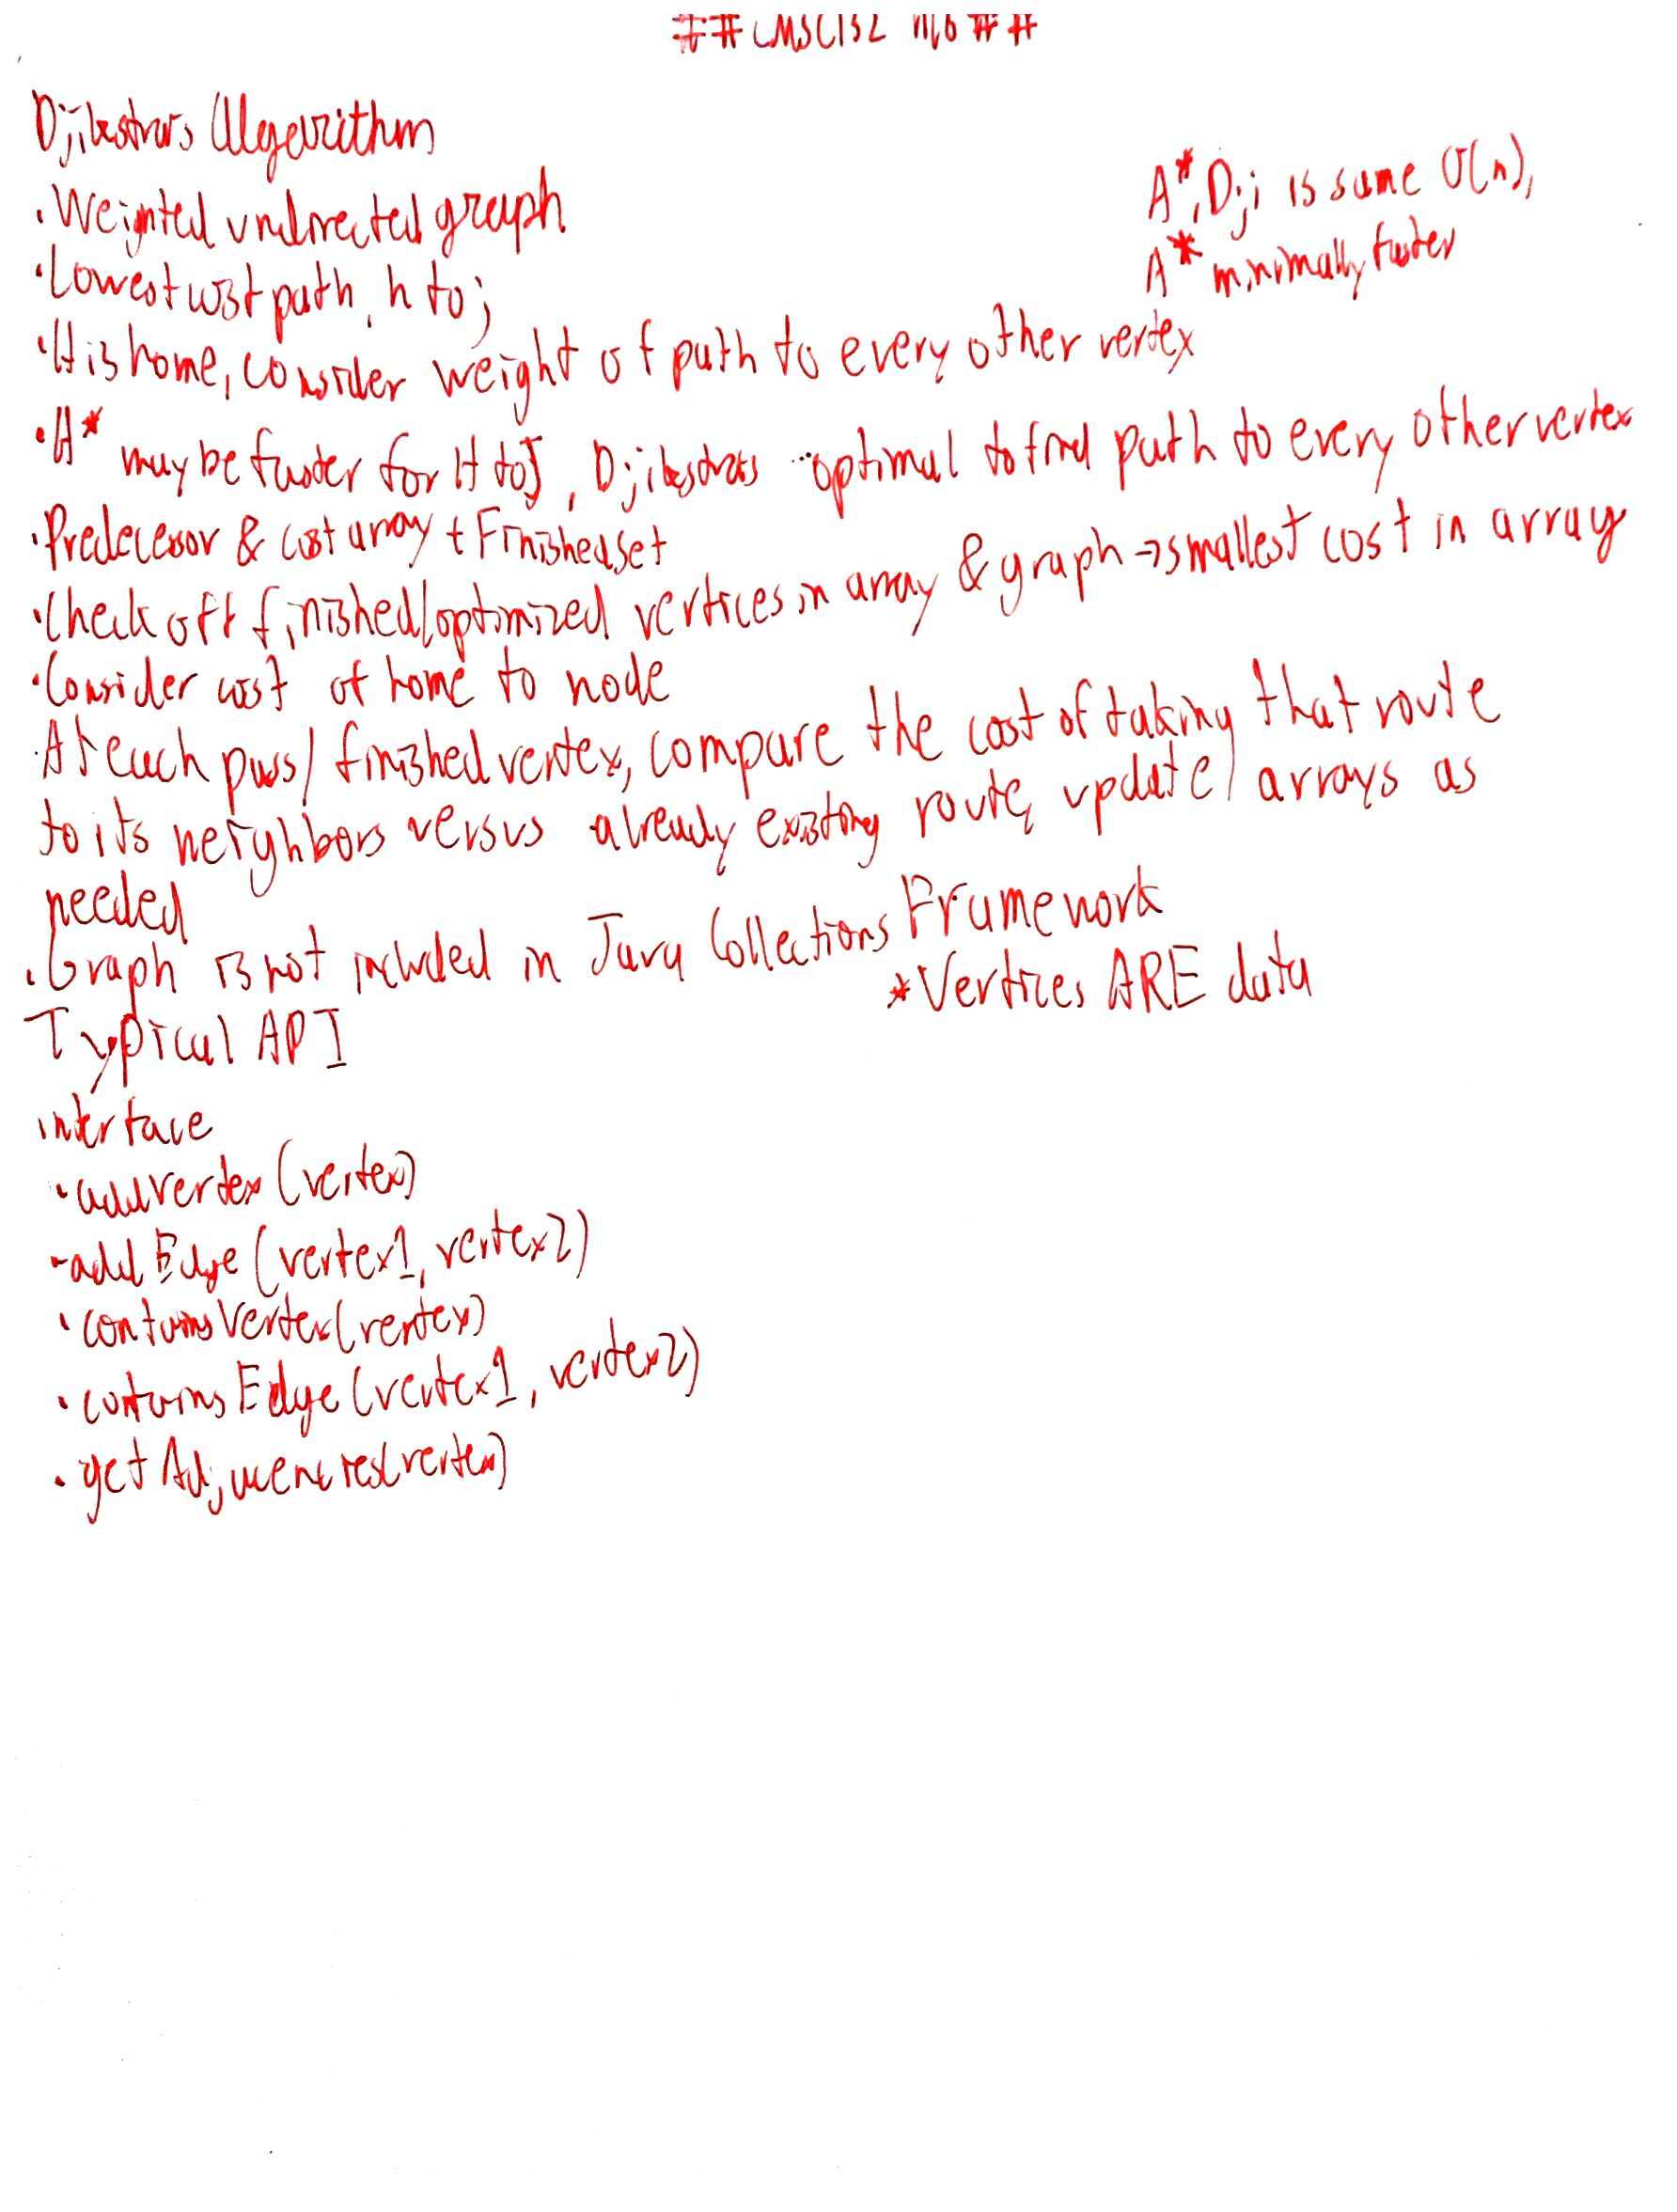 ##CMSC132 11/6##
Djikstras Algorithm
A*, Djij is same O(n),
A* minimally faster
• Weighted undirected graph
• Lowest cost path, h to j
• H is home, consider weight of path to every other vertex
• A* may be faster for H to J, Djikstras optimal to find path to every other vertex
• Predecessor & cost array + Finished set
• Check off finished/optimized vertices in array & graph → smallest cost in array
• Consider cost of home to node
• At each pass/finished vertex, compare the cost of taking that route
to its neighbors versus already existing route, update arrays as
needed
• Graph is not included in Java Collections Framework
*Vertices ARE data
Typical API
interface
• addVertex(vertex)
- addEdge(vertex1, vertex2)
• containsVertex(vertex)
• containsEdge(vertex1, vertex2)
• getAdjacencies(vertex)